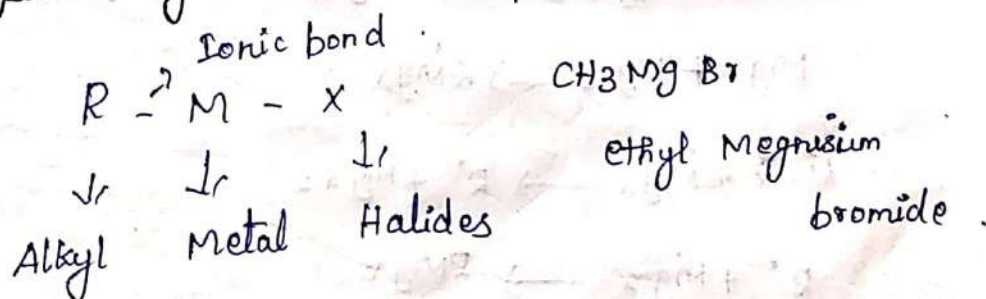 Ionic bond .
R - M - X
CH3 Mg Br
ethyl Megnisium
bromide .
Alkyl Metal Halides